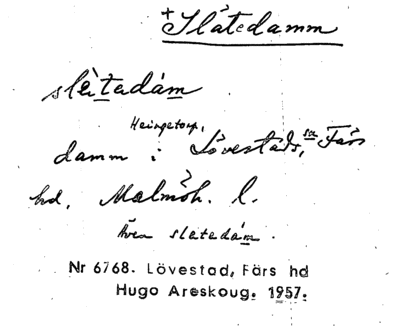 +Slätedamm
slètedám
Heingetorp,
damm i Lövestads, sn Färs
hd, Malmöh. l.
Även sletedám.
Nr 6768. Lövestad, Färs hd
Hugo Areskoug. 1957.